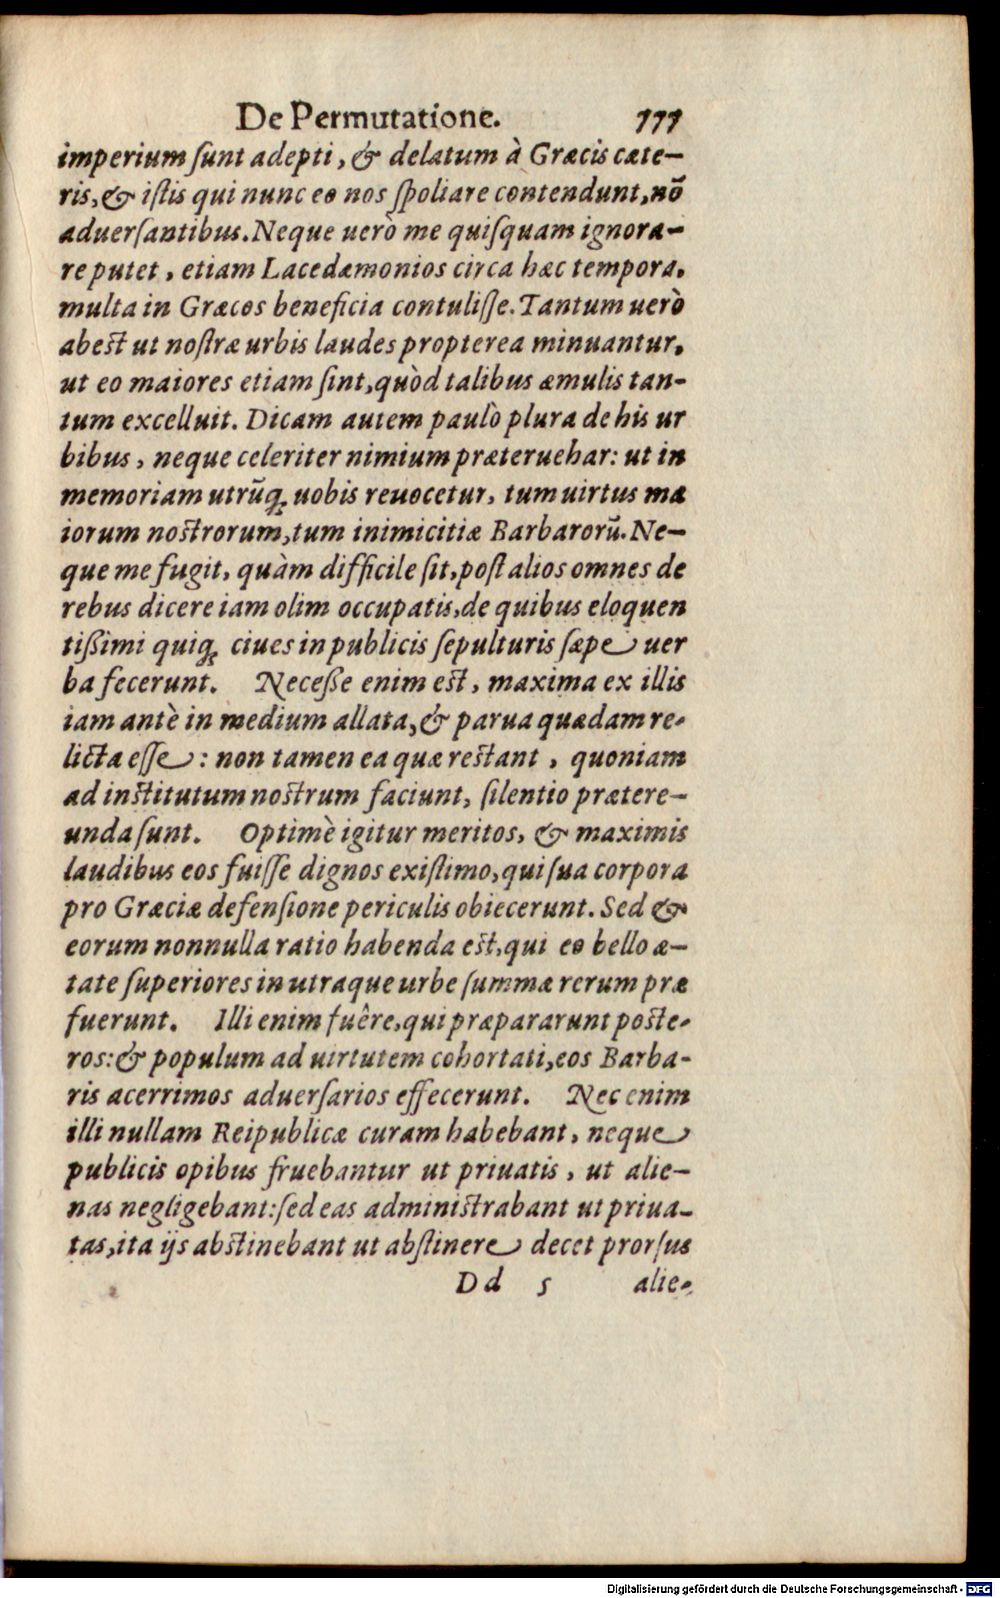 De Permutatione. 777
imperium sunt adepti, & delatum à Græcis cæte-
ris, & istis qui nunc eo nos spoliare contendunt, nõ
aduersantibus. Neque uerò me quisquam ignora-
re putet, etiam Lacedæmonios circa hæc tempora,
multa in Græcos beneficia contulisse. Tantum uerò
abest ut nostræ urbis laudes propterea minuantur,
ut eo maiores etiam sint, quòd talibus æmulis tan-
tum excelluit. Dicam autem paulò plura de his ur
bibus, neque celeriter nimium præteruehar: ut in
memoriam utrũq; uobis reuocetur, tum uirtus ma
iorum nostrorum, tum inimicitiæ Barbarorũ. Ne-
que me fugit, quàm difficile sit, post alios omnes de
rebus dicere iam olim occupatis, de quibus eloquen
tißimi quiq; ciues in publicis sepulturis sæpe uer
ba fecerunt. Neceße enim est, maxima ex illis
iam antè in medium allata, & parua quædam re-
licta esse: non tamen ea quæ restant, quoniam
ad institutum nostrum faciunt, silentio prætere-
unda sunt. Optimè igitur meritos, & maximis
laudibus eos fuisse dignos existimo, qui sua corpora
pro Græciæ defensione periculis obiecerunt. Sed &
eorum nonnulla ratio habenda est, qui eo bello æ-
tate superiores in utraque urbe summæ rerum præ
fuerunt. Illi enim fuêre, qui præpararunt poste-
ros: & populum ad uirtutem cohortati, eos Barba-
ris acerrimos aduersarios effecerunt. Nec enim
illi nullam Reipublicæ curam habebant, neque
publicis opibus fruebantur ut priuatis, ut alie-
nas negligebant: sed eas administrabant ut priua-
tas, ita ijs abstinebant ut abstinere decet prorsus
Dd 5 alie-
Digitalisierung gefördert durch die Deutsche Forschungsgemeinschaft - DFG